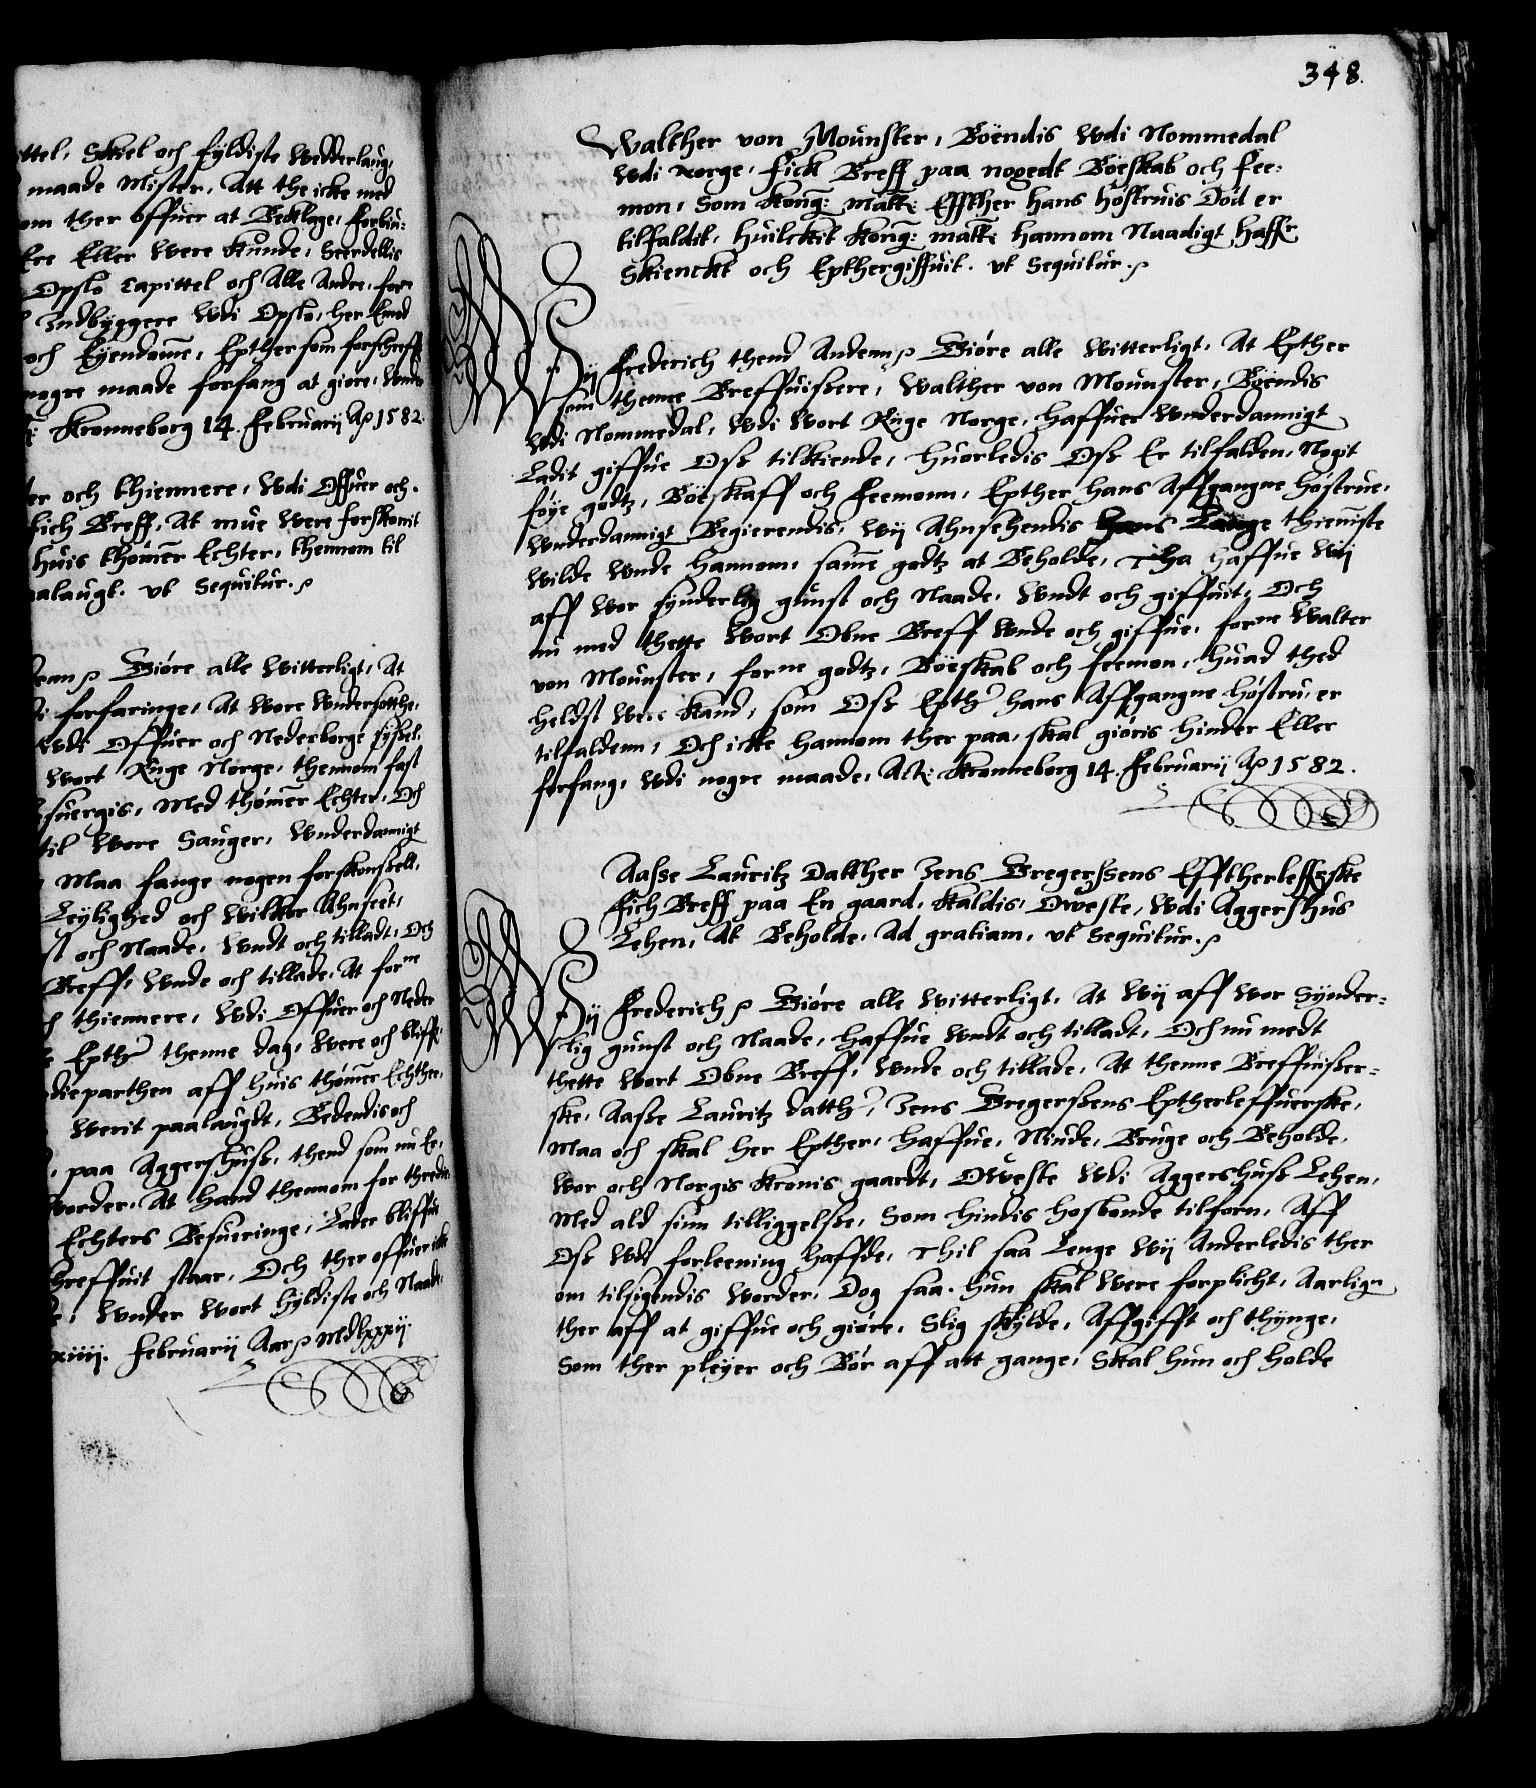 ttel, Skiel och fyldiste Wedderlaug,
maade Mister, Att the icke med
om ther offuer at Becklage, forbiu¬
Ere Eller Were Kunde, Seerdellis
Opslo Capittel och Alle Andre, forn
Indbyggere Wdi Opslo, her Emod
och Eyendomme, Epther som forschreff
nogre maade forfang at giøre, Wnder
Kronneborg 14. Februarij Ao 1582.
er och thiennere, Wdi Offuer och
kich Breff, At mue Were forskonit
huis thømer Echter, thennom til
aalaugt. vt Sequitur.
denn Giøre alle Witterligt, At
forfaringe, At Wore Wndersotthe,
Wdi Offuer och Nederborge sysßel,
Wort Rige Norge, thennom fast
suergis, Med thømer Echter, Och
til Wore Sauger, Wnderdannigt
Maa fange nogen forskonßell,
Leylighed och Wilckor Ahnseet,
st och Naade, Wndt och tilladt, Och
Breff, Wnde och tillade, At forne
thiennere, Wdi Offuer och Neder
Epther thenne dag, Were och bliffue
dieparthen aff huis thømer Echther,
Werit paalaugdt, Bedendis och
paa Aggershuß, thend som nu Er,
vorder, At hand thennom for thredie
Echters Besueringe, Lader bliffue
hreffuit staar, Och ther offuer icke
Wnder Wort hyldiste och Naade,
xiiij. Februarij Aar MDlxxxij
348.
Walther von Mounster, Boendis Wdi Nommedal
Wdi Norge, fick Breff paa nogedt Boeskab och fee¬
mon, Som Kong: Matt: Effther hans høstruis Død er
tilfaldit, huilckit Kong: matt: hannom Naadigt haffr
Skienckt och Epthergiffuit. vt Sequitur.
Wij Frederich thend Anden Giøre alle Witterligt, At Epther
som thenne Breffuißere, Walther von Mounster, Boendis
Wdi Nommedal, Wdi Wort Rige Norge, haffuer Wnderdannigt
Ladit giffue Oß tilkiende, huorledis Oß Er tilfalden, Nogit
føye godtz, Böeskaff och Feemonn, Epther hans Affgangne høstrue,
Wnderdannigt Begierendis, Wij Ahnsehendis hans Lange thienniste
Wilde Wnde hannom, samme godtz at Beholde, Tha haffue Wij
aff Wor synderlig gunst och Naade, Wndt och giffuit, Och
nu med thette Wort Obne Breff Wnde och giffue, forne Walter
von Mounster, forne godtz, Böeskab och feemon, huad thed
heldst Were Kand, som Oß Epther hans Affgangne høstru, er
tilfaldenn, Och icke hannom ther paa, skal giøris hinder Eller
forfang, Wdi nogre maade, Act: Kronneborg 14. Februarij Ao 1582.
Aasse Lauritz Datther Jens Bregerssens Efftherleffrske
fich Breff paa En gaard, Kaldis, Oweste, Wdi Aggershus
Lehen, At Beholde, Ad gratiam, vt Sequitur.
Wij Frederich Giøre alle Witterligt, At Wij aff Wor Synder¬
lig gunst och Naade, haffue Wndt och tilladt, Och nu medt
thette Wort Obne Breff, Wnde och tillade, At thenne Breffuißer¬
ske, Aaße Lauritz datther, Jens Bregerßens Eptherleffuerske,
Maa och skal her Epther, haffue, Niude, Bruge och Beholde,
Wor och Norgis Kronis gaardt, Oweste Wdi Aggershuß Lehen,
Med ald sinn tilliggelße, Som hindis hosbonde tilforn, Aff
Oß Wdi forleening haffde, Thil saa Lenge Wij Anderledis ther
om tilsigendis Worder, Dog saa, hun skal Were forplicht, Aarligen
ther aff at giffue och giøre, Slig skylde, Affgifft och thynge,
Som ther pleyer och Bør aff att gange, Skal hun och holde